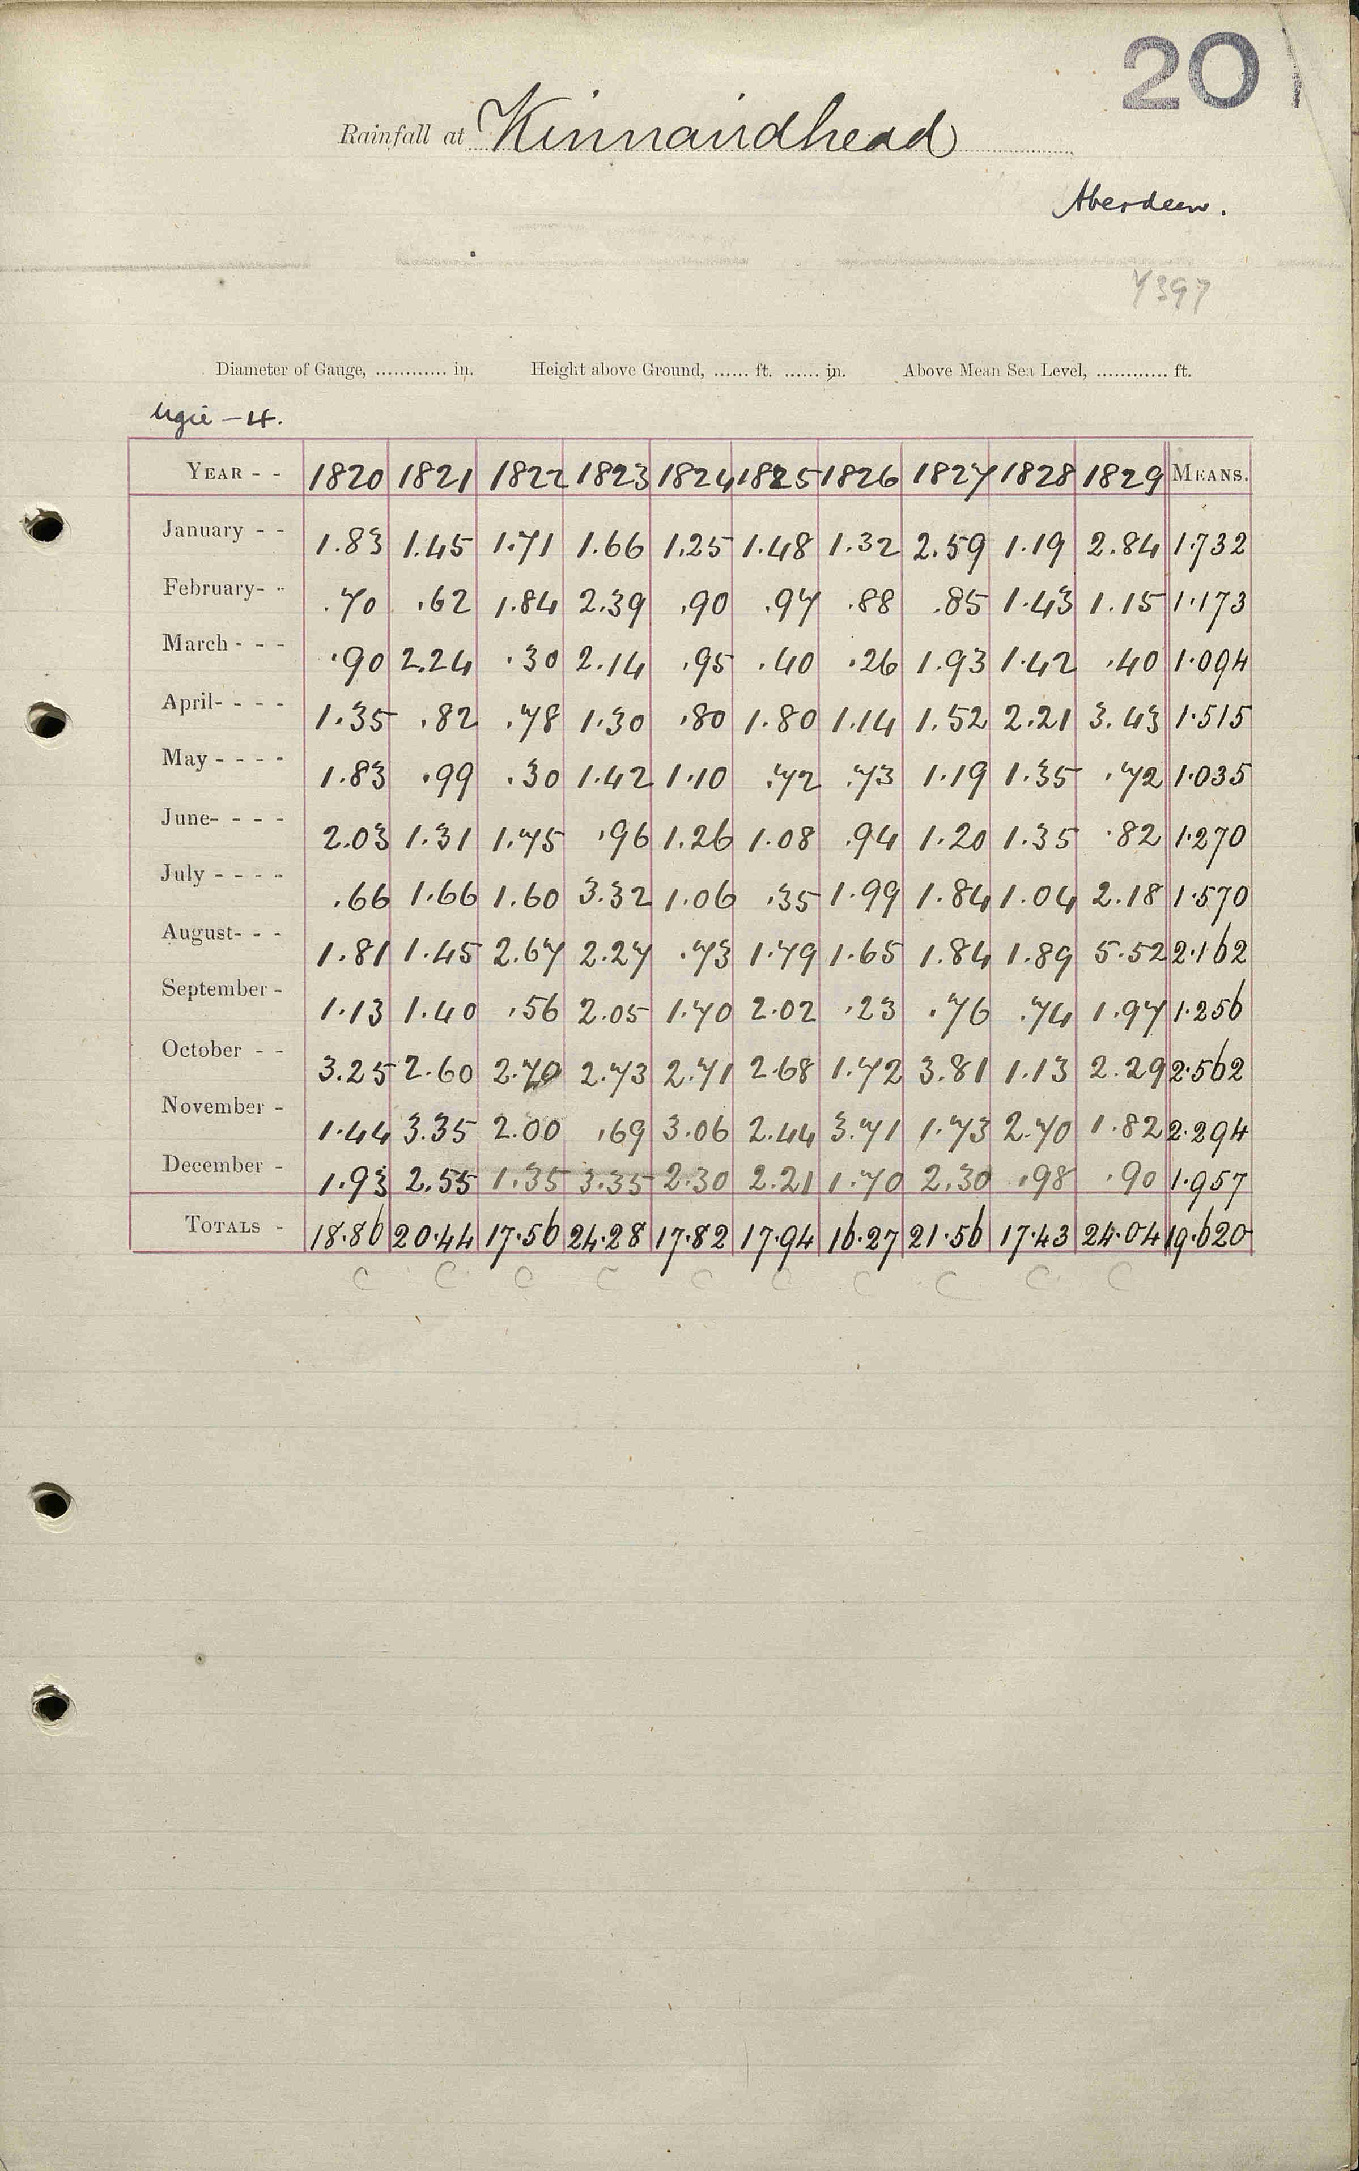 20
Rainfall at Kinnairdhead
Aberdeen.
7397
Diameter of Gauge, ............ in. Height above Ground, ...... ft. ...... in. Above Mean Sea Level, ............ ft.
Ugie - 4.
YEAR - - 1820 1821 1822 1823 1824 1825 1826 1827 1828 1829 MEANS.
January - - 1.83 1.45 1.71 1.66 1.25 1.48 1.32 2.59 1.19 2.84 1.732
February- - .70 .62 1.84 2.39 .90 .97 .88 .85 1.43 1.15 1.173
March - - - .90 2.24 .30 2.14 .95 .40 .26 1.93 1.42 .40 1.094
April- - - - 1.35 .82 .78 1.30 .80 1.80 1.14 1.52 2.21 3.43 1.515
May - - - - 1.83 .99 .30 1.42 1.10 .72 .73 1.19 1.35 .72 1.035
June- - - - 2.03 1.31 1.75 .96 1.26 1.08 .94 1.20 1.35 .82 1.270
July - - - - .66 1.66 1.60 3.32 1.06 .35 1.99 1.84 1.04 2.18 1.570
August- - - 1.81 1.45 2.67 2.27 .73 1.79 1.65 1.84 1.89 5.52 2.162
September - 1.13 1.40 .56 2.05 1.70 2.02 .23 .76 .74 1.97 1.256
October - - 3.25 2.60 2.70 2.73 2.71 2.68 1.72 3.81 1.13 2.29 2.562
November - 1.44 3.35 2.00 .69 3.06 2.44 3.71 1.73 2.70 1.82 2.294
December - 1.93 2.55 1.35 3.35 2.30 2.21 1.70 2.30 .98 .90 1.957
TOTALS - 18.86 20.44 17.56 24.28 17.82 17.94 16.27 21.56 17.43 24.04 19.620
C C C C C C C C C C